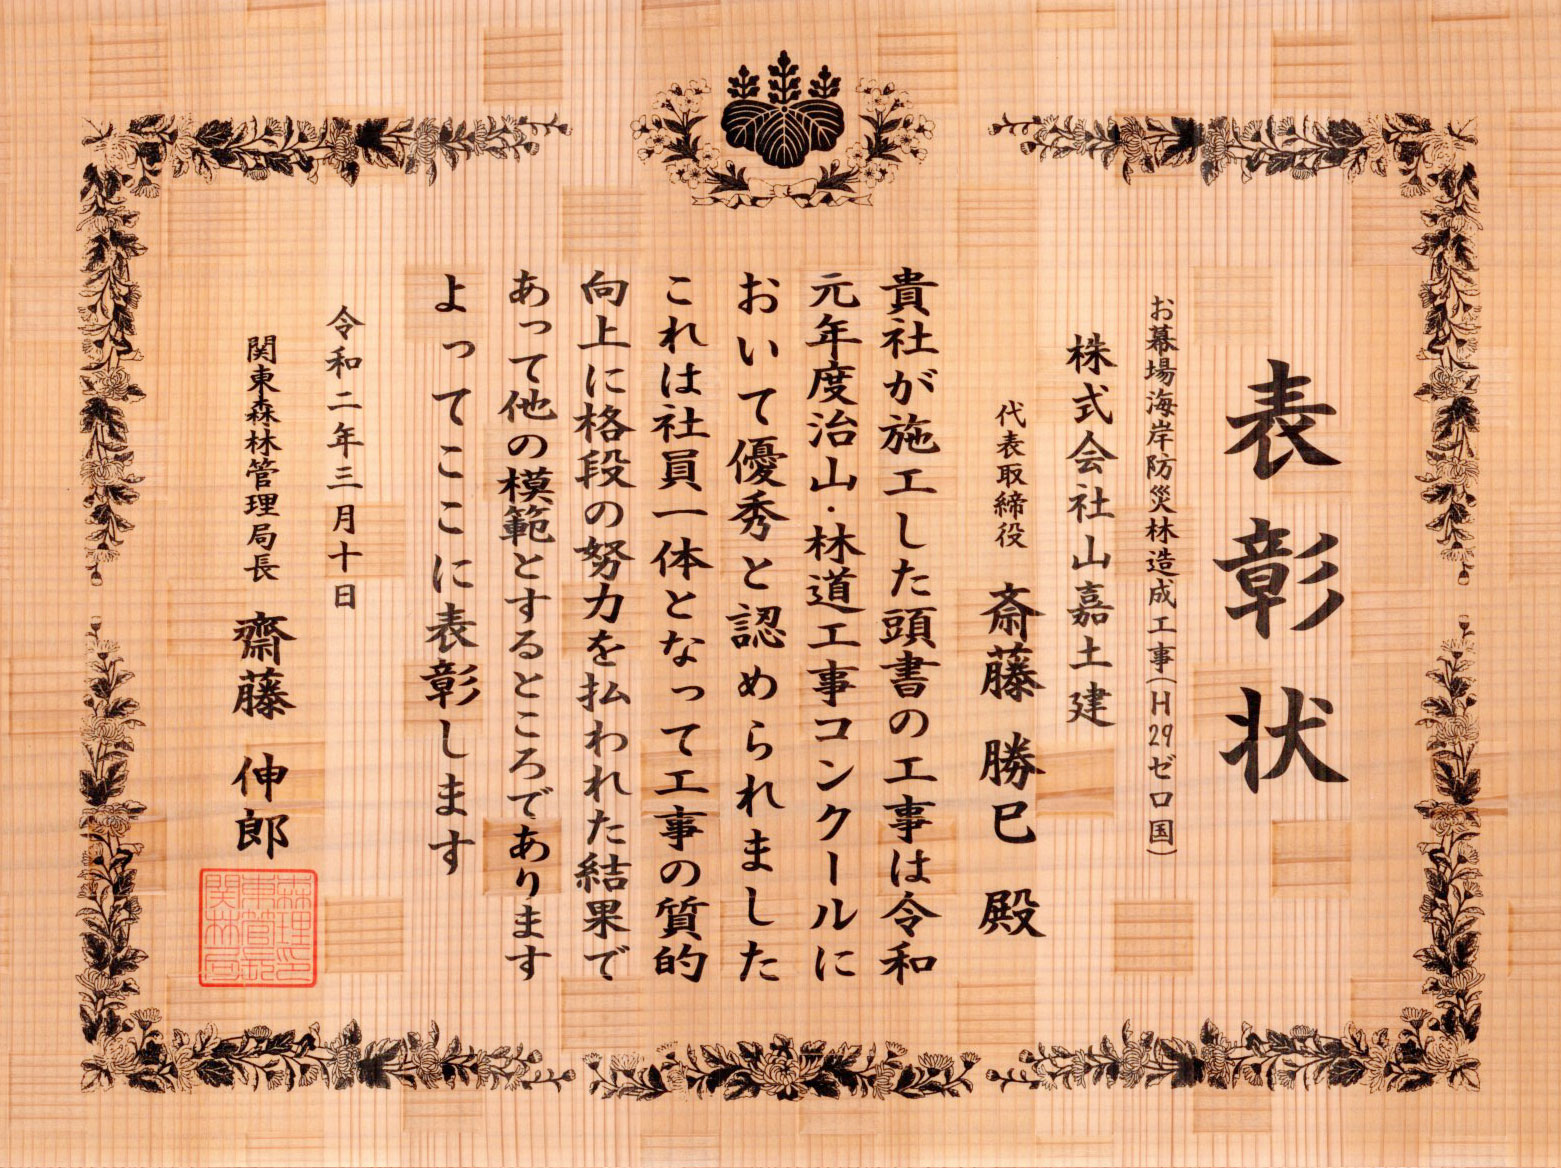 表彰状
お幕場海岸防災林造成工事(H29ゼロ国)
株式会社山嘉土建
代表取締役 斎藤勝巳殿
貴社が施工した頭書の工事は令和
元年度治山・林道工事コンクールに
おいて優秀と認められました
これは社員一体となって工事の質的
向上に格段の努力を払われた結果で
あって他の模範とするところであります
よってここに表彰します
令和二年三月十日
関東森林管理局長 齋藤伸郎